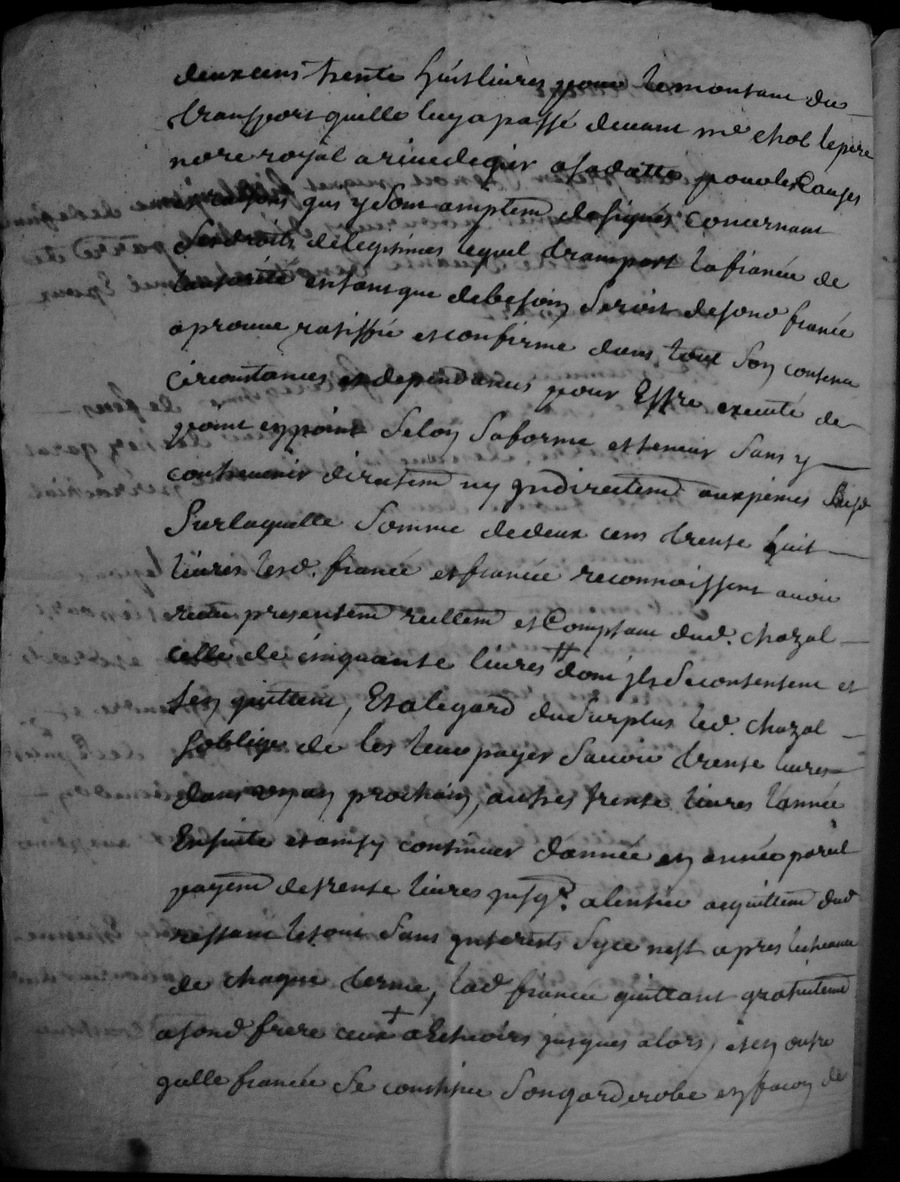 deux cens trente huit livres pour le montant du
transport quelle luy a passé devant me chol le pere
nore royal a rive de gier a sa datte pour les causes
qui y sont amptem designés concernant
ses droits de legitimes lequel transport la fiancée de
lauthorité en tant que de besoin seroit de sond fiancé
aprouve ratiffie et confirme dans tout son contenu
circonstances et dependances pour Estre executé de
point en point selon sa forme et teneur sans y
contrevenir directem ny indirectem aux peines
Sur laquelle somme de deux cens trente huit
livres lesd. fiancé et fiancée reconnoissent avoir
receu presentem reellem et Comptam dud. chazal
celle de cinquante livres dont ils se contentent et
len quittent, Et a legard du surplus led. chazal
soblige de les leur payer savoir trente livres
dans un an prochain, autres trente livres lannée
Ensuite et ainsy continuer dannée en année pareil
payem de trente livres jusqr. a lentier acquittem dud
restant le tout sans interests sy ce nest apres lecheance
de chaque terme, lad fiancée quittant gratuitem
a sond frere ceux a Echeoirs jusques alors, et en outre
qelle fiancée se constitue son garderobe en facon de